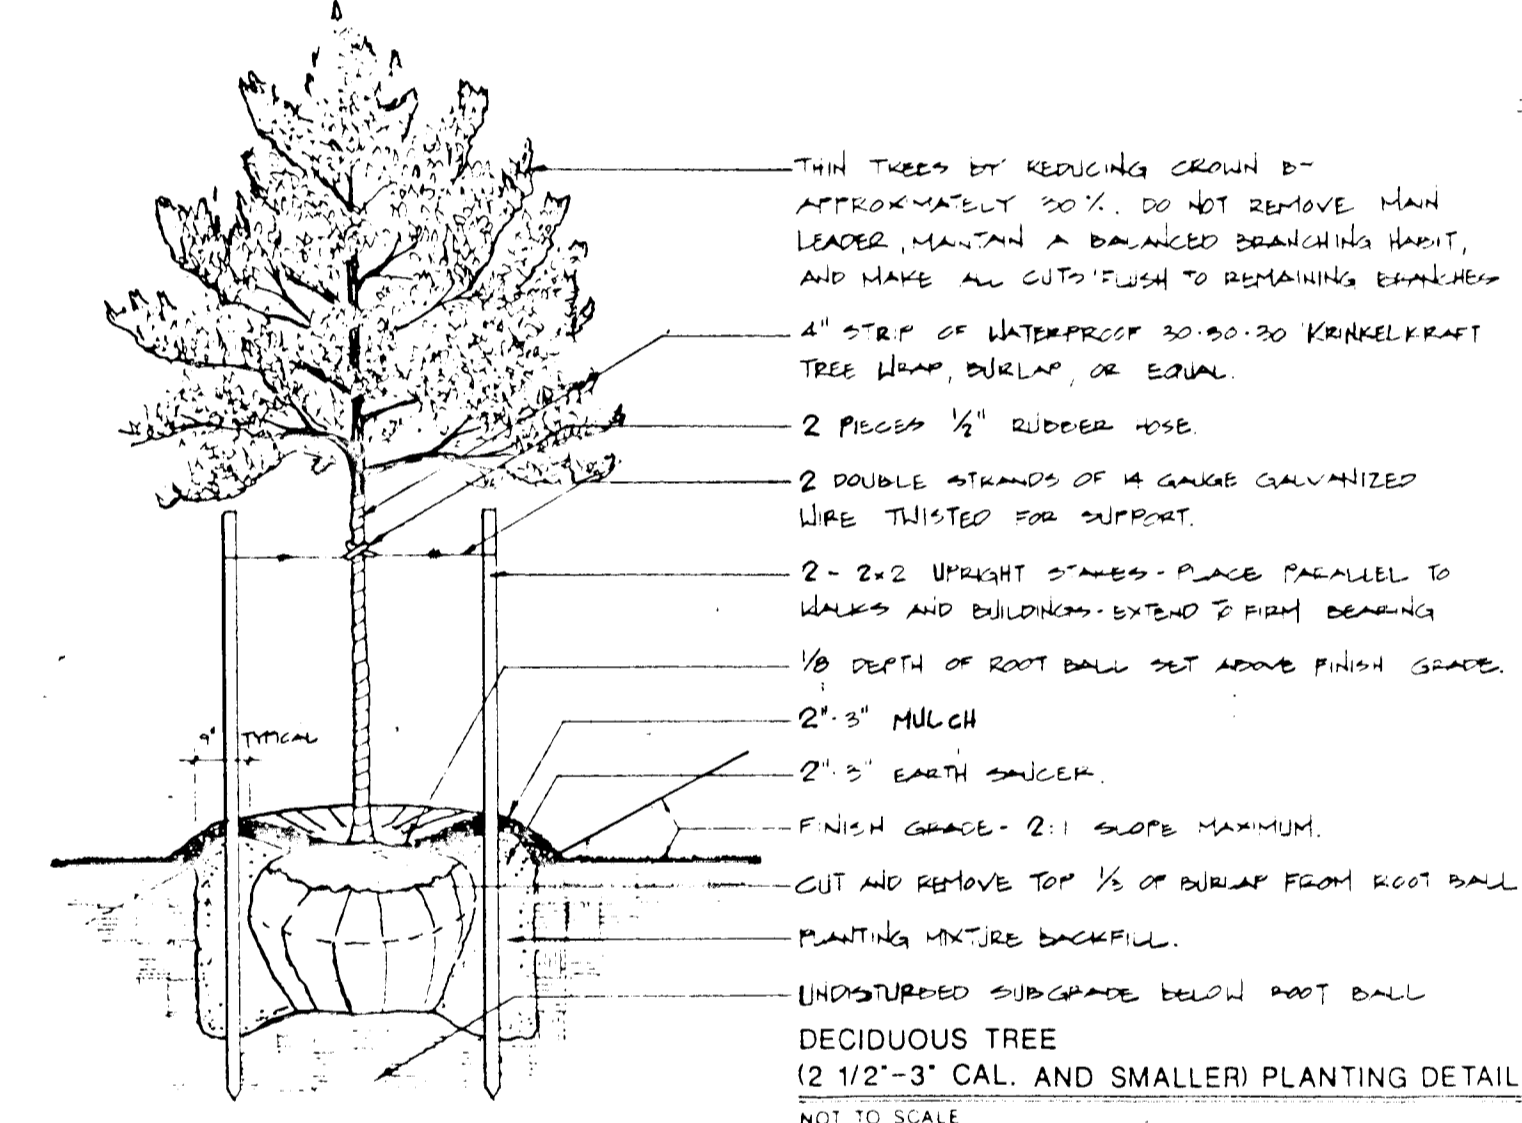 THIN TREES BY REDUCING CROWN B-
APPROXIMATELY 30%. DO NOT REMOVE MAIN
LEADER, MAINTAIN A BALANCED BRANCHING HABIT,
AND MAKE ALL CUTS FLUSH TO REMAINING BRANCHES
4" STRIP OF WATERPROOF 30·30·30 KRINKELKRAFT
TREE WRAP, BURLAP, OR EQUAL.
2 PIECES 1/2" RUBBER HOSE.
2 DOUBLE STRANDS OF 14 GAUGE GALVANIZED
WIRE TWISTED FOR SUPPORT.
2 - 2x2 UPRIGHT STAKES - PLACE PARALLEL TO
WALKS AND BUILDINGS - EXTEND TO FIRM BEARING
1/8 DEPTH OF ROOT BALL SET ABOVE FINISH GRADE.
2"-3" MULCH
9" TYPICAL
2"-3" EARTH SAUCER.
FINISH GRADE - 2:1 SLOPE MAXIMUM.
CUT AND REMOVE TOP 1/3 OF BURLAP FROM ROOT BALL
PLANTING MIXTURE BACKFILL.
UNDISTURBED SUBGRADE BELOW ROOT BALL
DECIDUOUS TREE
(2 1/2"-3" CAL. AND SMALLER) PLANTING DETAIL
NOT TO SCALE